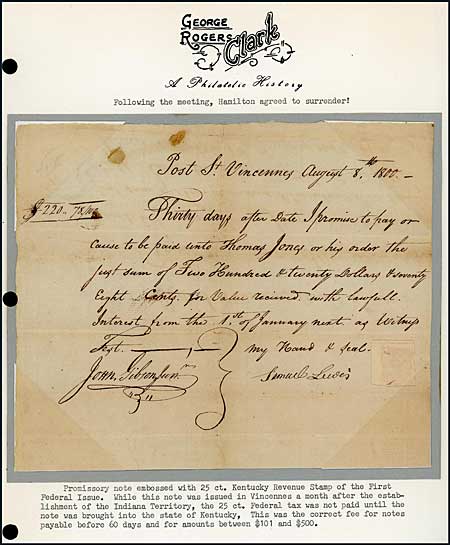 GEORGE
ROGERS
Clark
A Philatelic History
Following the meeting, Hamilton agreed to surrender!
Post St Vincennes August 8.th 1800.—
$ 220.. 78/100
Thirty days after Date I promise to pay or
cause to be paid unto Thomas Jones or his order the
just sum of Two Hundred & twenty Dollars & seventy
Eight Cents. for Value recieved with lawfull
Interest from the 1.st of January next. as Witness
Test. my Hand & seal.
John Gibson junr.
Samuel Lewis
Promissory note embossed with 25 ct. Kentucky Revenue Stamp of the First
Federal Issue. While this note was issued in Vincennes a month after the estab-
lishment of the Indiana Territory, the 25 ct. Federal tax was not paid until the
note was brought into the state of Kentucky. This was the correct fee for notes
payable before 60 days and for amounts between $101 and $500.